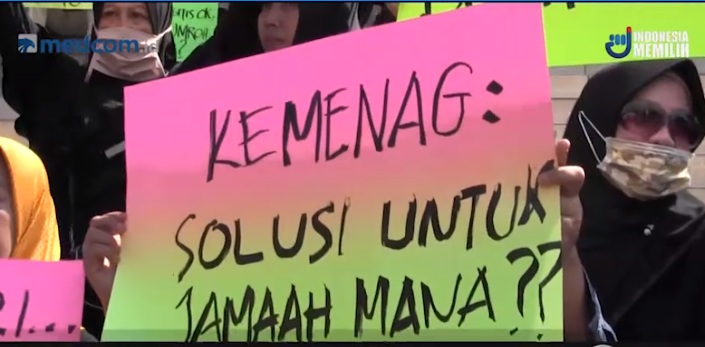 medcom.id
INDONESIA
MEMILIH
KEMENAG:
SOLUSI UNTUK
JAMAAH MANA??